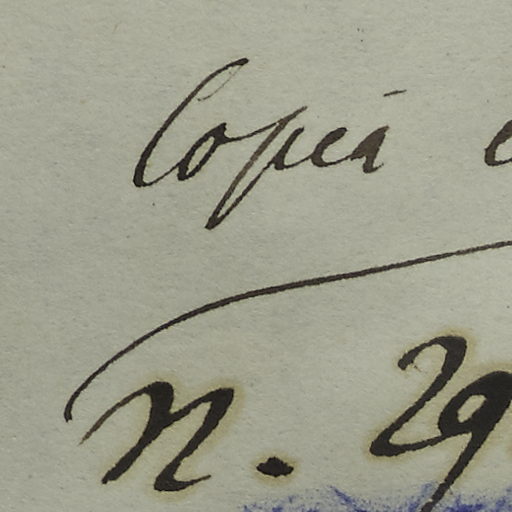 Copiá
N. 29